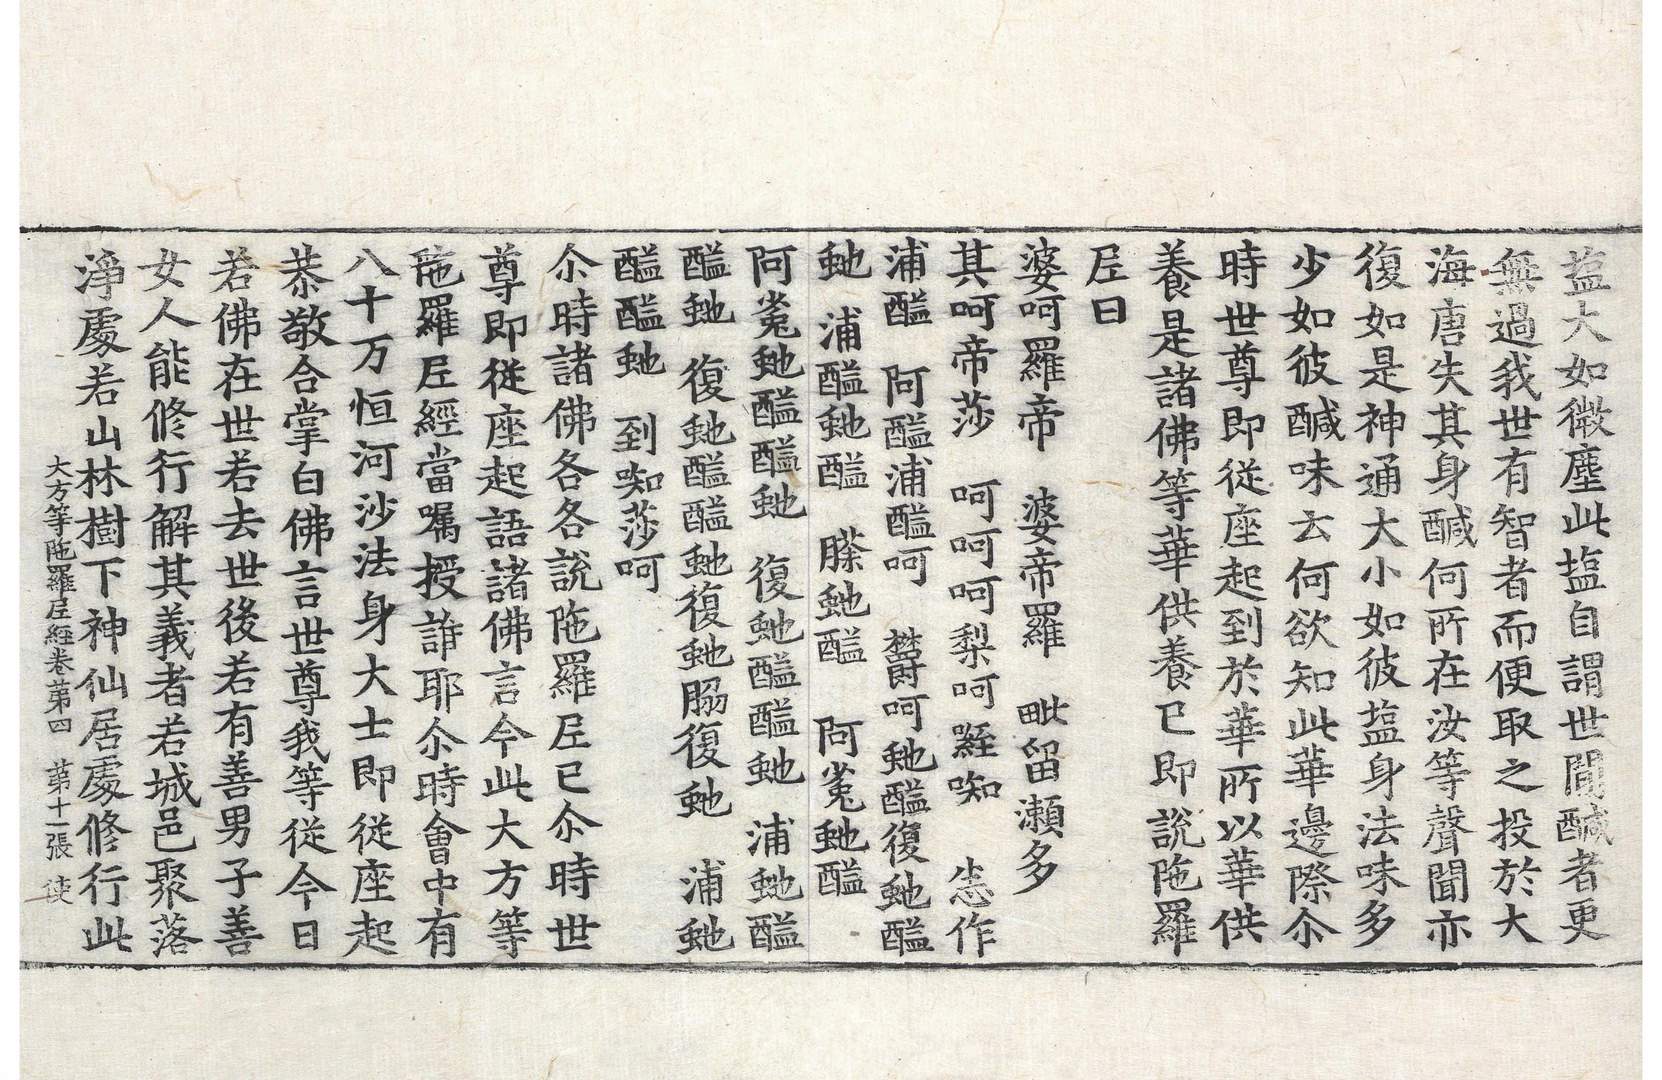 塩大如微塵此塩自謂世間醎者更
無過我世有智者而便取之投於大
海唐失其身醎何所在汝等聲聞亦
復如是神通大小如彼塩身法味多
少如彼醎味云何欲知此華邊際尒
時世尊即従座起到於華所以華供
養是諸佛等華供養已即説陁羅
𡰱曰
婆呵羅帝　婆帝羅　毗留瀬多
其呵帝莎　呵呵呵梨呵　㗌　恙作
浦醯　阿醯浦醯呵　欝呵虵醯復虵醯
虵　浦醯虵醯　虵醯　阿㝹虵醯
阿㝹虵醯醯虵　復虵醯醯虵　浦虵醯
醯虵　復虵醯醯虵復虵復虵　浦虵
醯醯虵　到㗌莎呵
尒時諸佛各各説陁羅𡰱已尒時世
尊即従座起語諸佛言今此大方等
陁羅𡰱經當嘱授誰耶尒時會中有
八十万恒河沙法身大士即従座起
恭敬合掌白佛言世尊我等従今日
若佛在世若去世後若有善男子善
女人能修行解其義者若城邑聚落
淨處若山林樹下神仙居處修行此
大方等陁羅𡰱經卷第四　第十一張